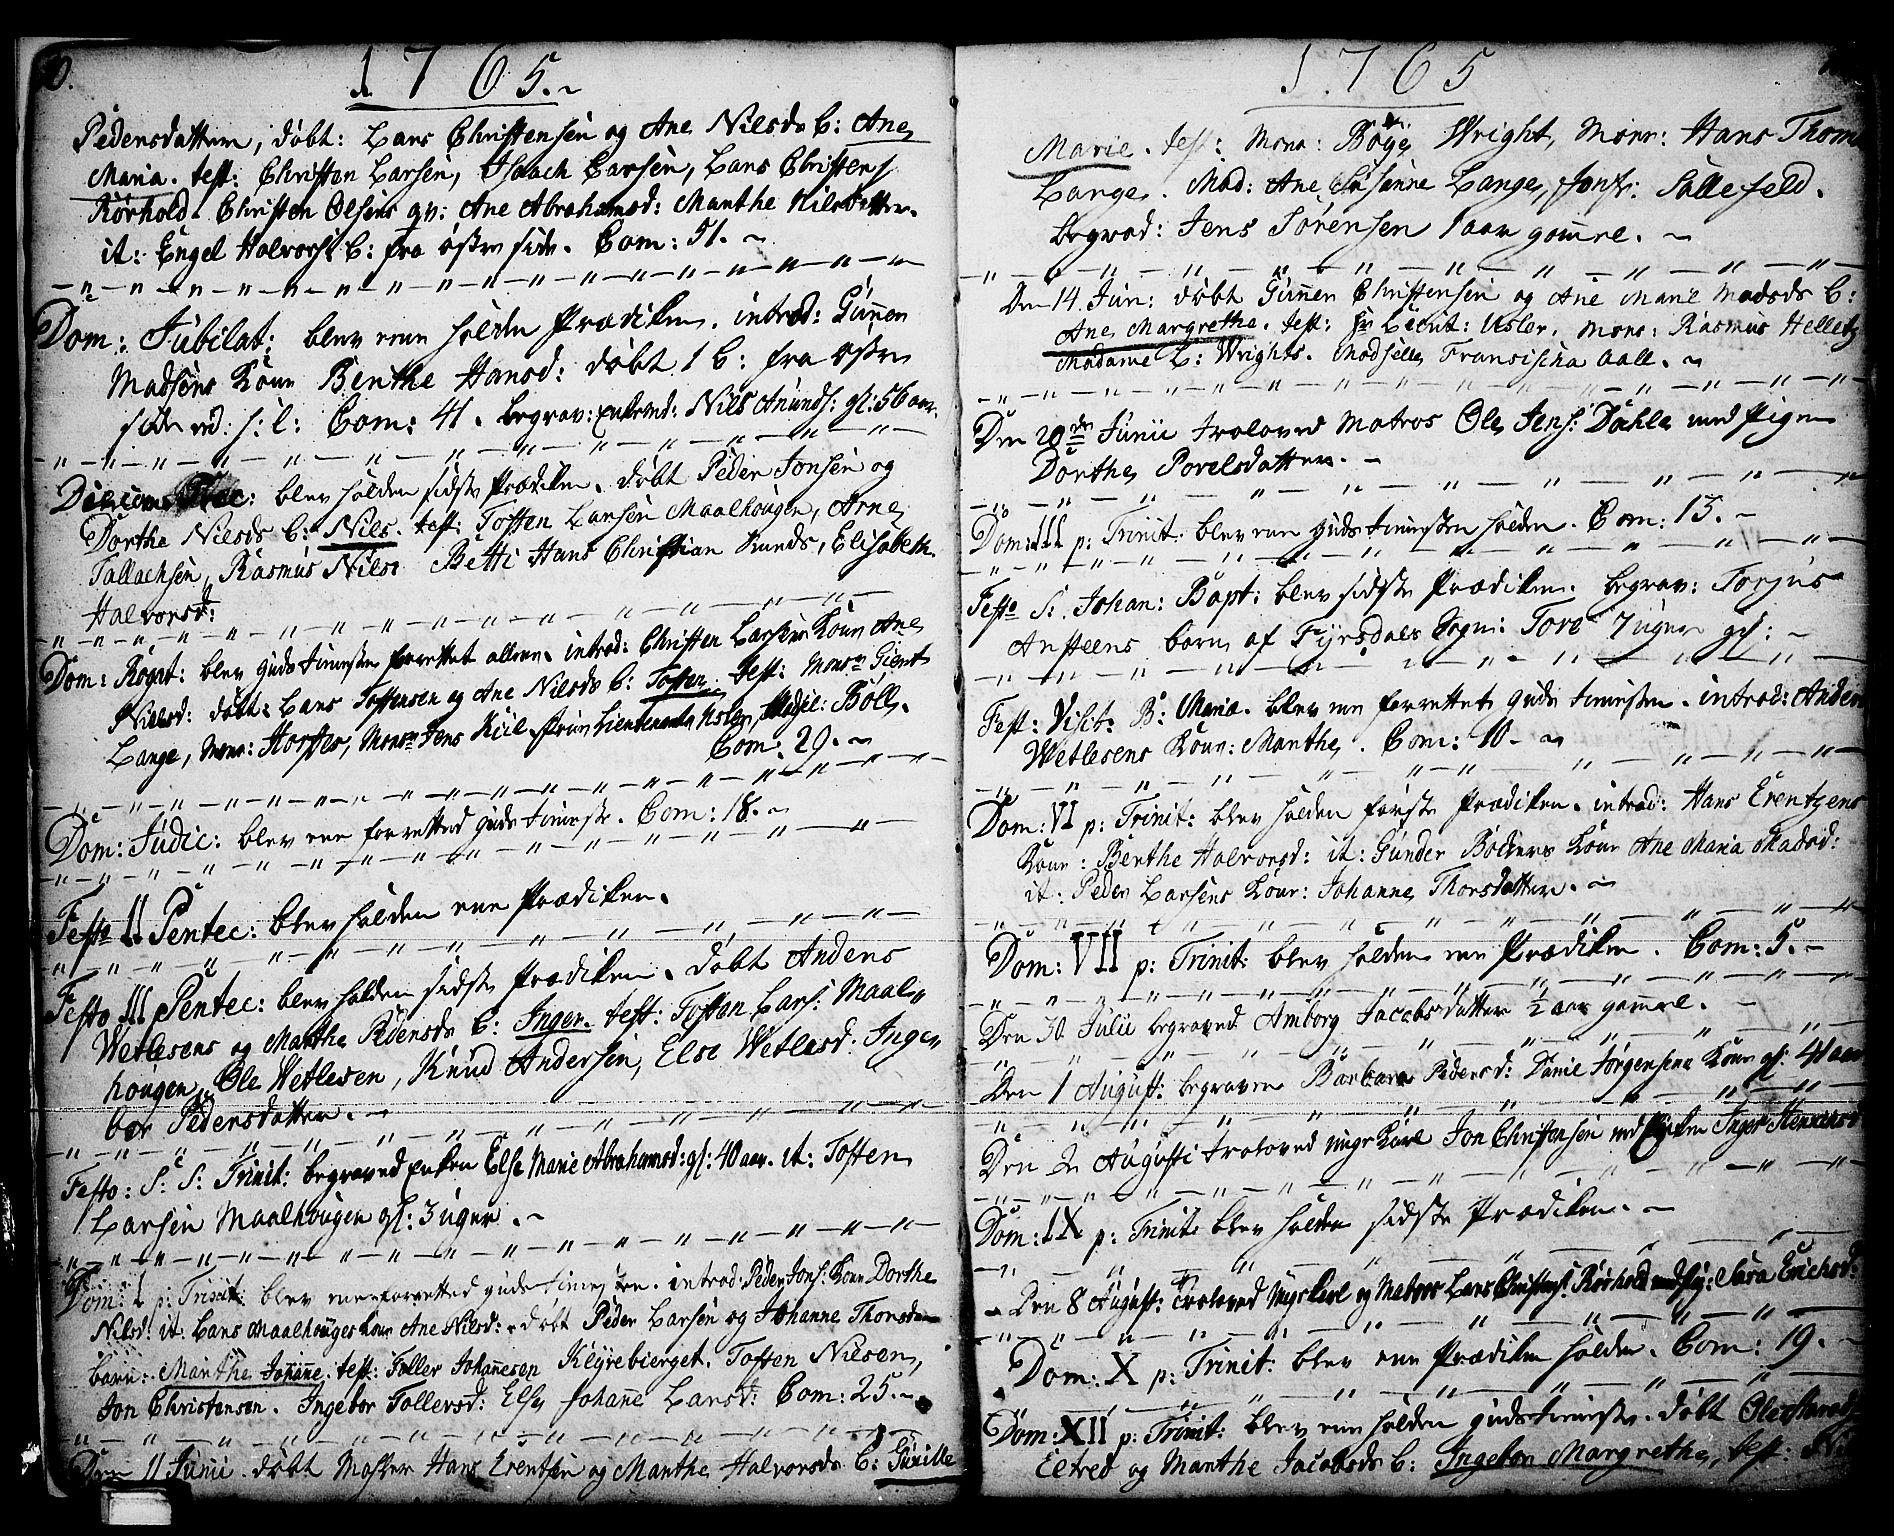 0.
1765.~
Pedersdatters, døbt: Lars Christensen og Ane Nilsds B: Ane
Maria. test: Christen Larsen, Isaach Larsen, Lars Christens
Rørhold. Christen Olsens qv: Ane Abrahamsd: Marthe Nilsdatter.
it: Engel Halvorsds B: fra østre side. Com: 51. ~
Dom: Jubilat: blev een holden Prædiken. introd: Gunner
Madsøns Kone Benthe Hansd: døbt 1 B: fra østre
side ved Com: 41. begrav: Enkemd: Nils Anunds: gl: 56 aar.
blev holden sidste Prædiken. døbt Peder Jonsen og
Dorthe Nilsds B: Nils. test: Tosten Larsen Maalhougen, Arne
Tallachsen, Rasmus Nilse Betti Hans Christian Elisabeth
Halvorsd:
Dom: Rogat: blev guds tieneste forrettet alleene. introd: Christen Larsens Kone Ane
Nielsd: døbt: Lars Tostensen og Ane Nilsds B: Tosten. test: Monsr Gient
Lange, Monsr: Horster, Monsr Jens Kiil, Lieutenant Usler, Madsel: Bøll.
Com: 29. ~
Dom: Judic: blev een forrettet guds tieneste. Com: 18. ~
Festo II Pentec: blev holden een Prædiken.
Festo III Pentec: blev holden sidste Prædiken. døbt Anders
Wetlesens og Marthe Pedersds B: Inger. test: Tosten Lars: Maal„
hougen, Ole Wetlesen, Knud Andersen, Else Wetlesd: Inge„
bor Pedersdatter. ~
Festo: S: S: Trinit: begraved Enken Else Marie Abrahamsd: gl: 40 aar. it: Tosten
Larsen Maalhougen gl: 3 uger. ~
Dom: I p: Trinit: blev een forretted guds tieneste. introd: Peder Jons: Kone Dorthe
Nilsd: it: Lars Maalhouges kone Ane Nilsd: døbt Peder Larsen og Johanne Thorsd
barn: Marthe Johanne. test: Toller Johannesen Kleyvebierget. Tosten Nilsen,
Jon Christensen. Ingebor Tollersd: Else Johane Larsd: Com: 25. ~
Den 11 Junii døbt Mester Hans Erentsen og Marthe Halvorsds B: Gunille
1765
Marie. test: Monsr: Bøye Wright, Monsr: Hans Thom
Lange. Mad: Ane Susanne Lange, Jonfr: Sallefeld.
begrad: Jens Sørensen 1 aar gamel. ~
Den 14 Jun: døbt Gunner Christensen og Ane Marie Madsds B:
Ane Margrethe. test: Hr Lieut: Usler. Monsr: Rasmus Helletz
Madame L: Wrights. Madselle Francischa Aall. ~
Den 20de Junii troloved Matros Ole Jens: Dahle med Pigen
Dorthe Povelsdatter. ~
Dom: III p: Trinit: blev een guds tieneste holden. Com: 13. ~
Festo S: Johan: Bapt: blev sidste Prædiken. begrav: Torjus
Austeens barn af Fyrsdals Sogn: Tore 7 uger gl: ~
Fest: Visit: B: Mariæ. blev een forrettet guds tieneste. introd: Anders
Wetlesens Kone: Marthe. Com: 10. ~
Dom: VI p: Trinit: blev holden første Prædiken. introd: Hans Erentzens
Kone: Benthe Halvorsd: it: Gunder Bødkers Kone Ane Maria Madsd:
it: Peder Larsens Kone: Johanne Thorsdatter. ~
Dom: VII p: Trinit: blev holden een Prædiken. Com: 5. ~
Den 30 Julii begraved Amborg Jacobsdatter ½ aar gamel. ~
Den 1 August: begraven Barbara Pedersd: Danie Jørgensens Kone gl: 41 aar
Den 2 Augusti troloved unge Karl Jon Christensen med Pigen Inger
Dom: IX p: Trinit: blev holden sidste Prædiken. ~
Den 8 August: Troloved Ungekarl og Matros Lars Christens: Rørhold med Pig: Sara Erichsd:
Dom: X p: Trinit: blev een Prædiken holden. Com: 19. ~
Dom: XII p: Trinit: blev een holden guds tieneste. døbt Ole
Eetred og Marthe Jacobsds B: Ingebor Margrethe, test: